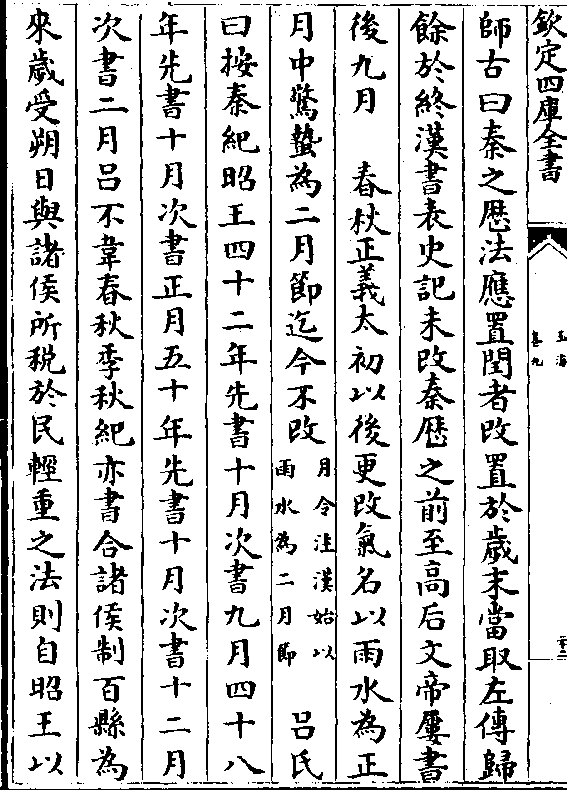 欽定四庫全書
玉海
卷九
二十三
師古曰秦之厯法應置閏者改置於歲末當取左傳歸
餘於終漢書表史記未改秦厯之前至高后文帝屢書
後九月　春秋正義太初以後更改氣名以雨水為正
月中驚蟄為二月節迄今不改月令注漢始以雨水為二月節　呂氏
曰按秦紀昭王四十二年先書十月次書九月四十八
年先書十月次書正月五十年先書十月次書十二月
次書二月呂不韋春秋季秋紀亦書合諸侯制百縣為
來歲受朔日與諸侯所稅於民輕重之法則自昭王以